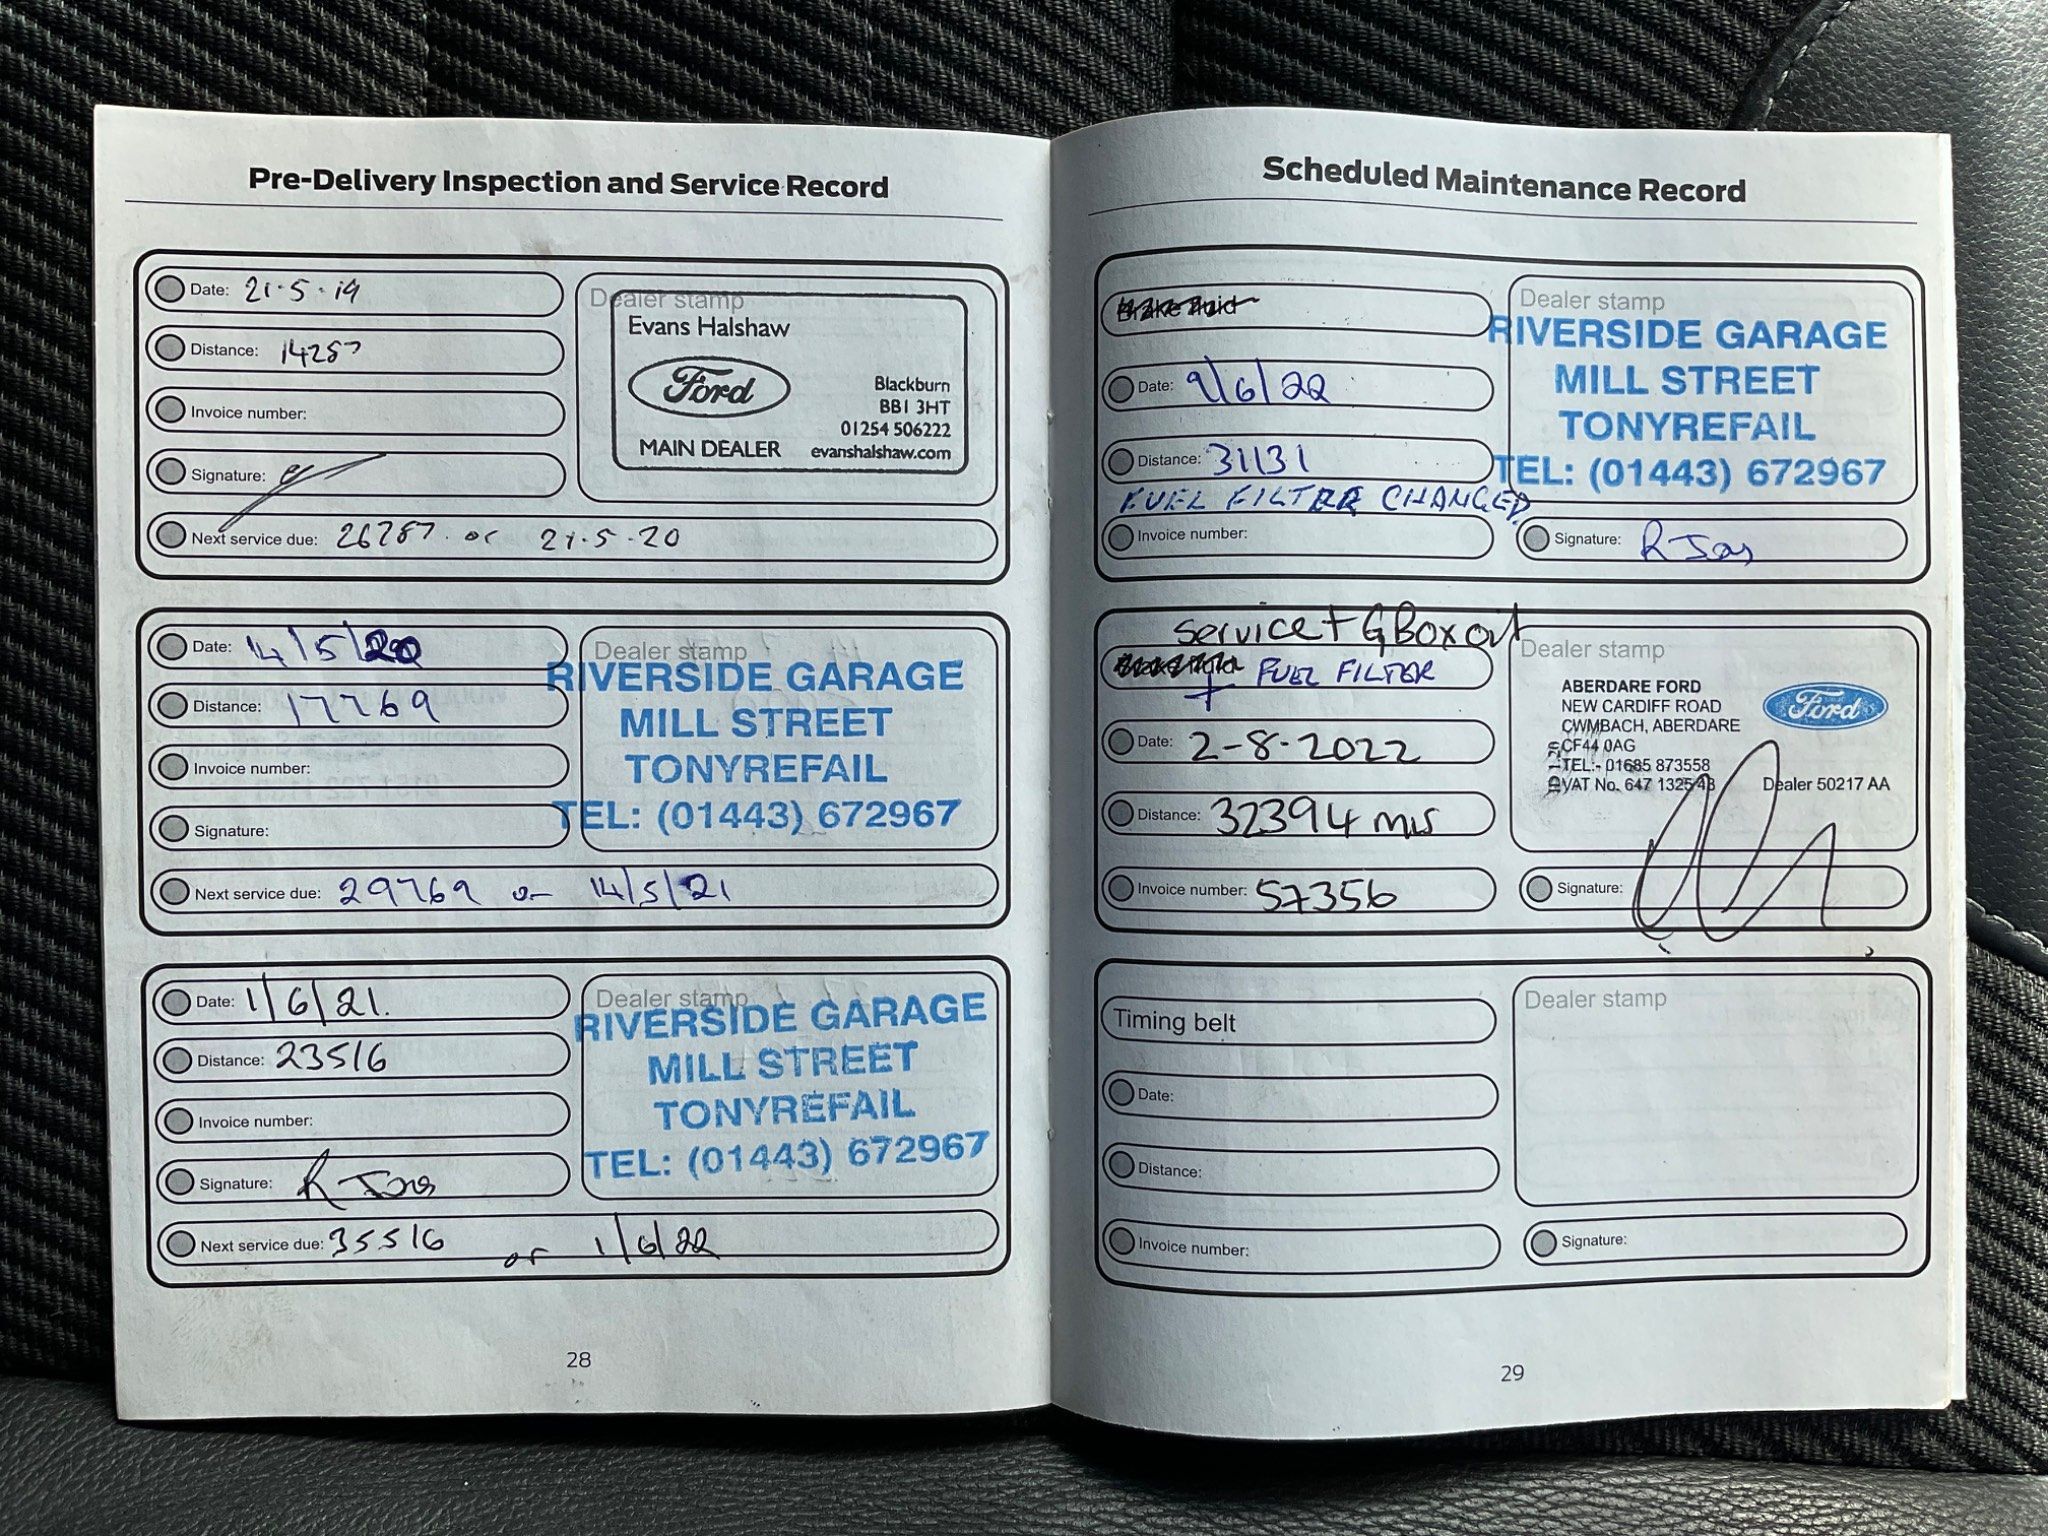 Pre-Delivery Inspection and Service Record
Date: 21·5·19
Distance: 14287
Invoice number:
Signature:
Next service due: 26287 or 21·5·20
Dealer stamp
Evans Halshaw
Ford
Blackburn
BB1 3HT
01254 506222
MAIN DEALER evanshalshaw.com
Date: 14/5/20
Distance: 17769
Invoice number:
Signature:
Next service due: 29769 or 14/5/21
Dealer stamp
RIVERSIDE GARAGE
MILL STREET
TONYREFAIL
TEL: (01443) 672967
Date: 1/6/21.
Distance: 23516
Invoice number:
Signature:
Next service due: 35516 or 1/6/22
Dealer stamp
RIVERSIDE GARAGE
MILL STREET
TONYREFAIL
TEL: (01443) 672967
28
Scheduled Maintenance Record
Brake fluid
Date: 9/6/22
Distance: 31131
FUEL FILTER CHANGED
Invoice number:
Dealer stamp
RIVERSIDE GARAGE
MILL STREET
TONYREFAIL
TEL: (01443) 672967
Signature:
Service + GBox oil
+ FUEL FILTER
Date: 2-8-2022
Distance: 32394 mls
Invoice number: 57356
Dealer stamp
ABERDARE FORD
NEW CARDIFF ROAD
CWMBACH, ABERDARE
CF44 0AG
TEL:- 01685 873558
VAT No. 647 1325 43
Ford
Dealer 50217 AA
Signature:
Timing belt
Date:
Distance:
Invoice number:
Dealer stamp
Signature:
29